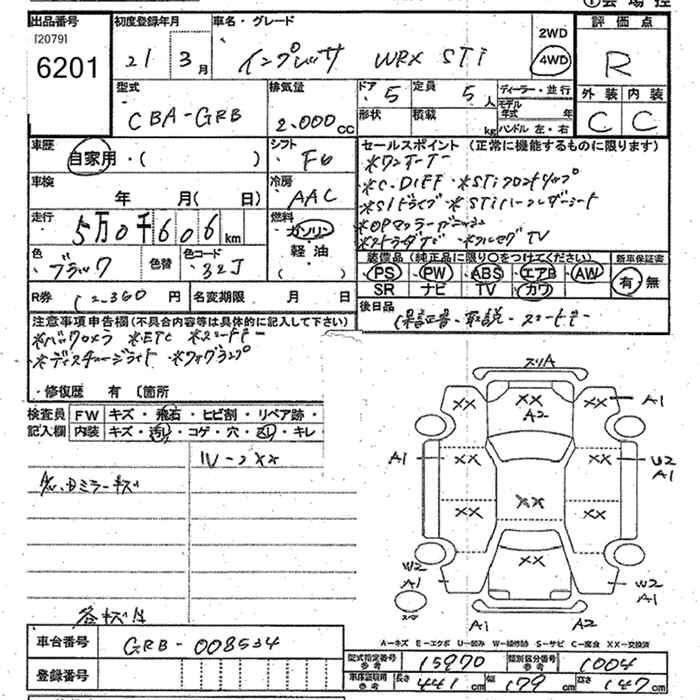 出品番号 初度登録年月 車名・グレード 評価点
[2079]
6201 21 3月 インプレッサ WRX STi 2WD 4WD R
型式 排気量 ドア 5 定員 5人 ディーラー・並行 外装 内装
CBA-GRB 2.000cc 形状 積載 kg モデル年式 年 C C
ハンドル 左・右
車歴 シフト セールスポイント (正常に機能するものに限ります)
自家用・( ) F6 *ワンオーナー
車検 冷房 *C.DIFF *STiフロントリップ
年 月( 日) AAC *SIドライブ *STiハーフレザーシート
走行 燃料
5万0千606km ガソリン
色 色替 色コード 軽油 TV
ブラック 32J ( ) 装備品 (純正品に限り○をつけてください) 新車保証書
PS PW ABS エアB AW 有・無
R券 円 名変期限 月 日 SR ナビ TV カワ
後日品
注意事項申告欄(不具合内容等は具体的に記入して下さい) 保証書・取説・スペアキー
*バックカメラ *ETC
*ディスチャージライト *フォグランプ
・修復歴 有 〔箇所
検査員 FW キズ・飛石・ヒビ割・リペア跡・
記入欄 内装 キズ・汚れ・コゲ・穴・スレ・キレ
スリA
XX XX XX A1
A2
A1 XX XX W2
A1
XX XX XX
ミラーキズ
W2 XX W2
A1 A1
A1 A2
各キズ小
A-キズ E-エクボ U-凹み W-補修跡 S-サビ C-腐食 XX-交換済
車台番号 GRB-008534 型式指定番号 参考 15970 類別区分番号 参考 1004
登録番号 車体証取用 参考 長さ 441cm 幅 179cm 高さ 147cm